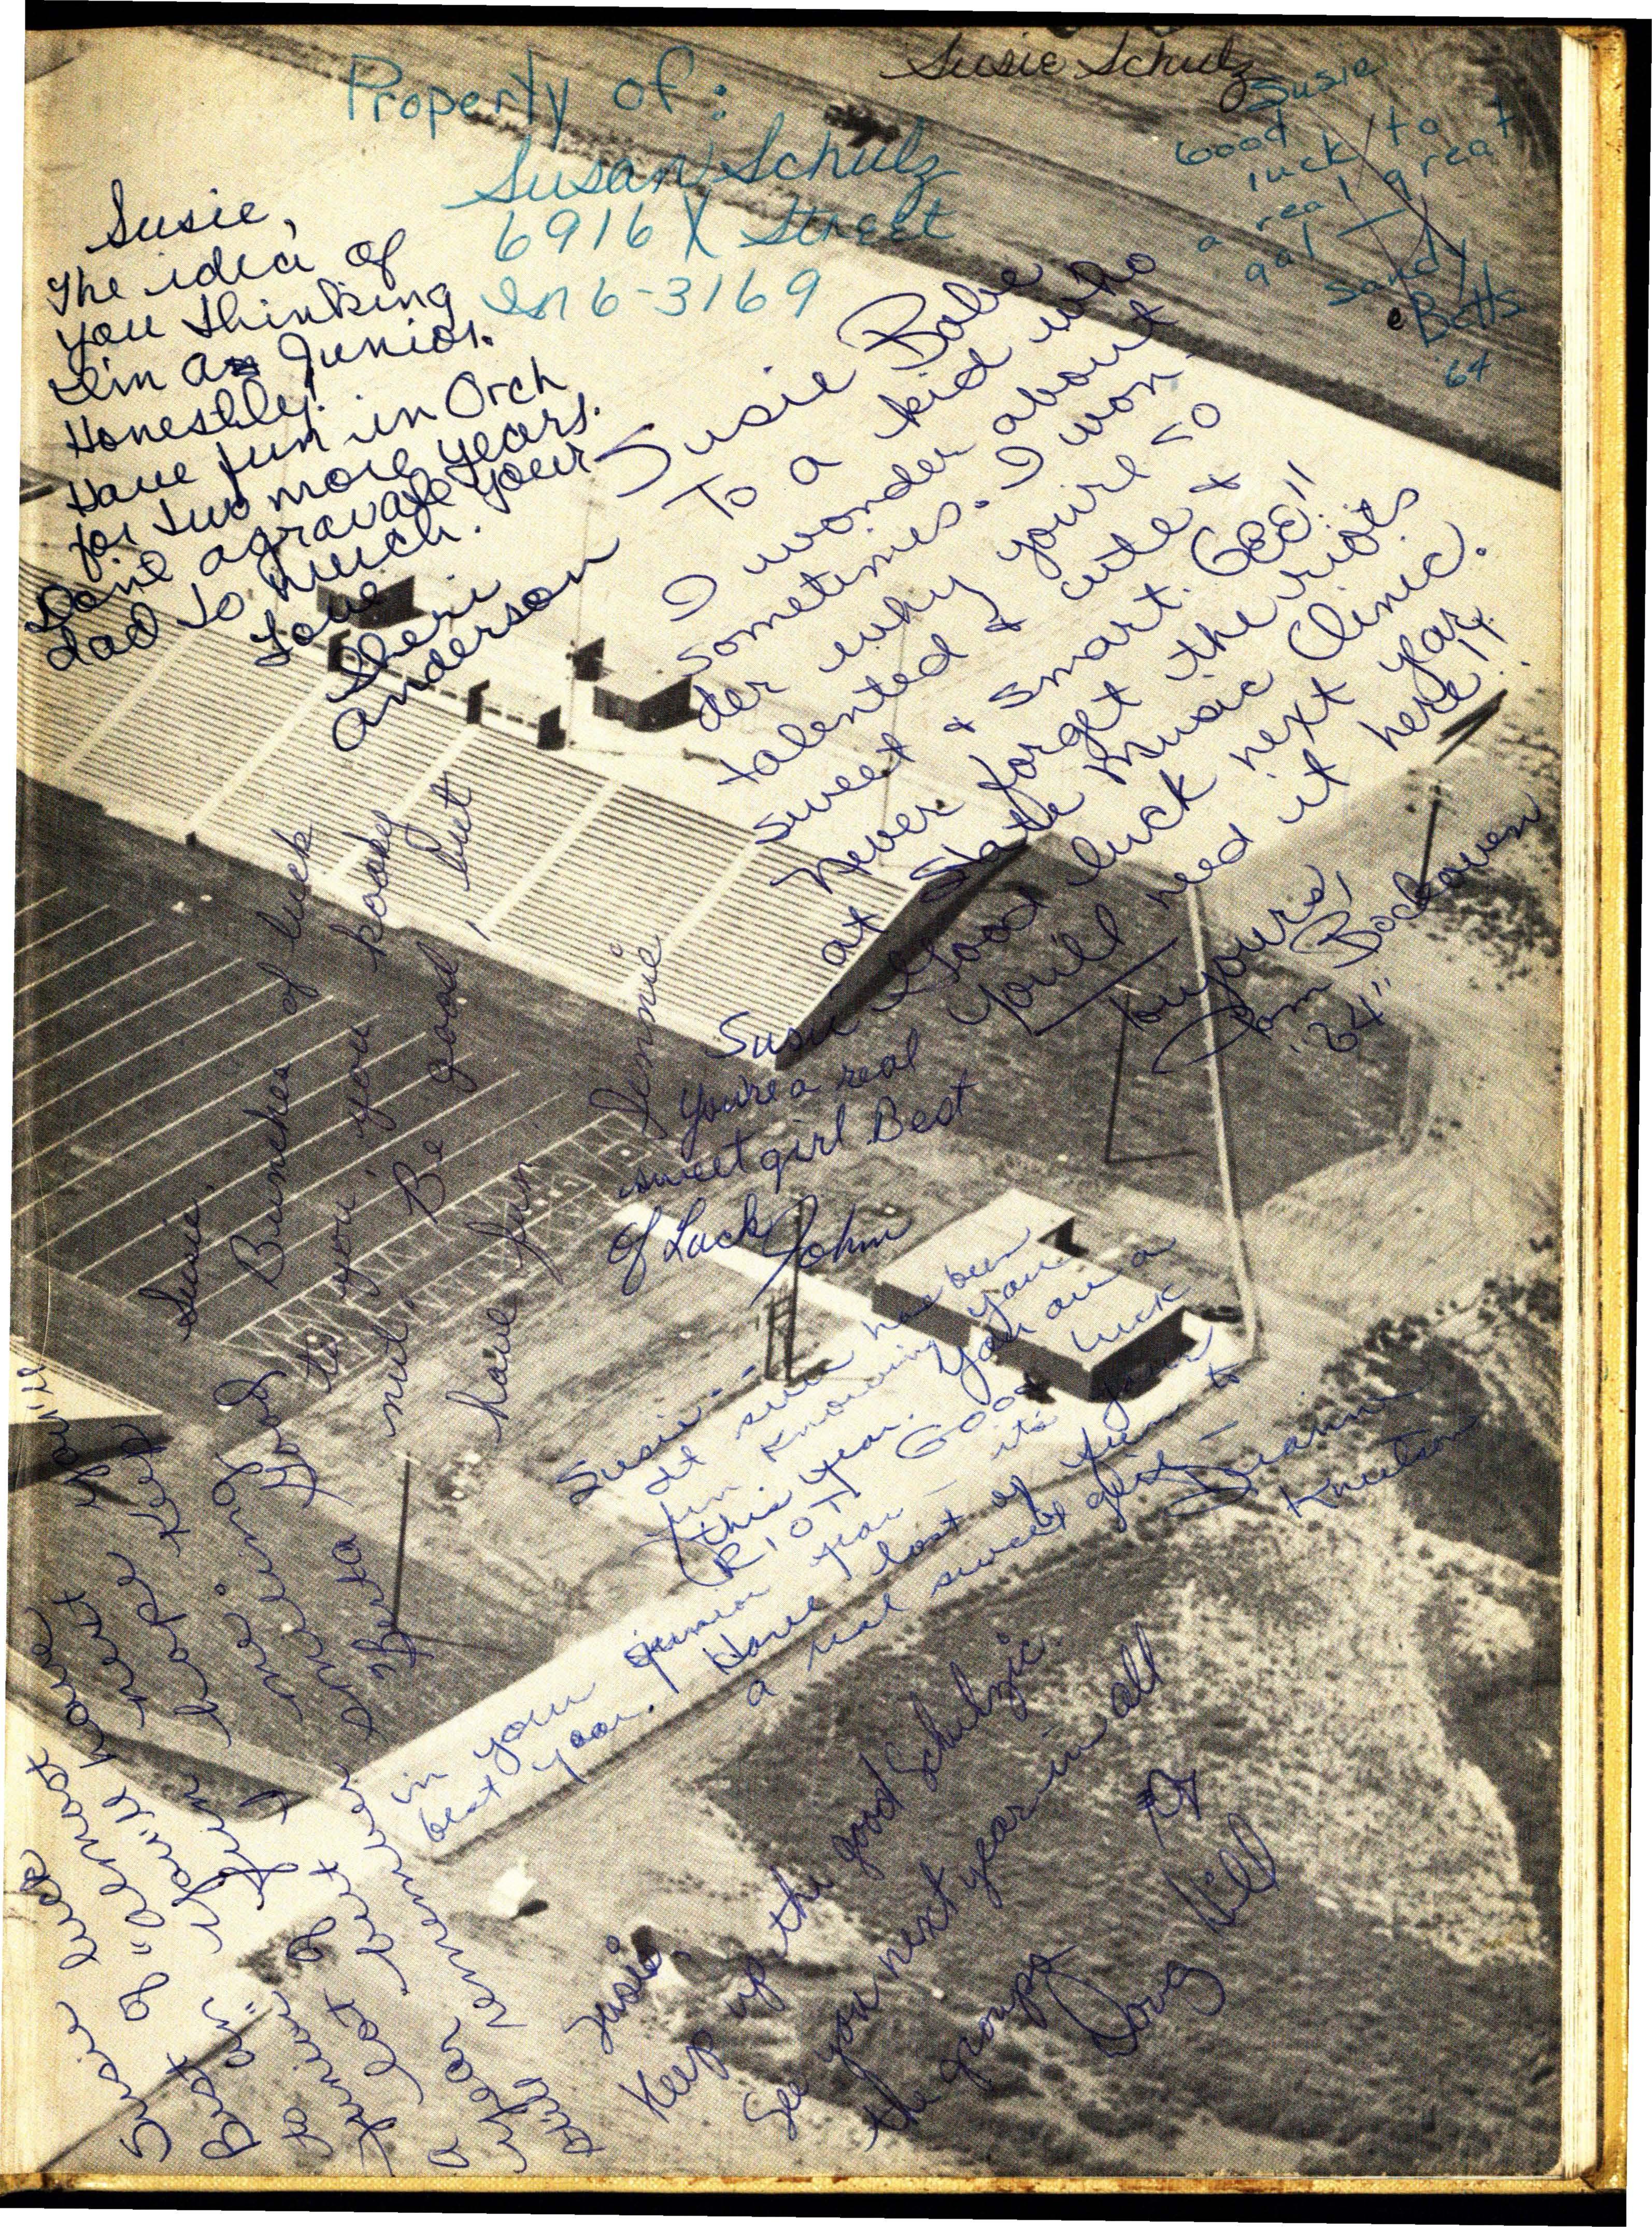 Susie Schulz
Property of:
Susan Schulz
6916 X Street
In 6-3169
Susie
Good
luck to
a real great
gal —
Sandy
Betts
'64
Susie,
The idea of
you thinking
I'm a Junior.
Honestly!
Have fun in Orch
for two more years.
Don't agravate your
dad to much.
Love
Sheri
Anderson
Susie Babe
To a kid who
I wonder about
sometimes. I won-
der why you're so
talented & cute &
sweet & smart. GEE!!
Never forget the riots
at State Music Clinic.
Good luck next year.
You'll need it here!!
Luyours,
Tom Bockoven
"64"
Susie,
Bunches of luck
to you, you kooky
nut. Be good, but
have fun
Jennie
Susie
You're a real
sweet girl. Best
of Luck
John
Susie--
It sure has been
fun knowing you
this year. You are a
RIOT Good luck
in your junior year - it's your
best year. Have lots of fun to
a real sweet girl —
Deanna
Knutson
Susie luck
Best of "almost
to an" You'll have
Junior next
a lot of fun I hope
year but keep
remember me!
Susie,
Keep up the good Schulzic.
See you next year in all
the groups
Doug Dill